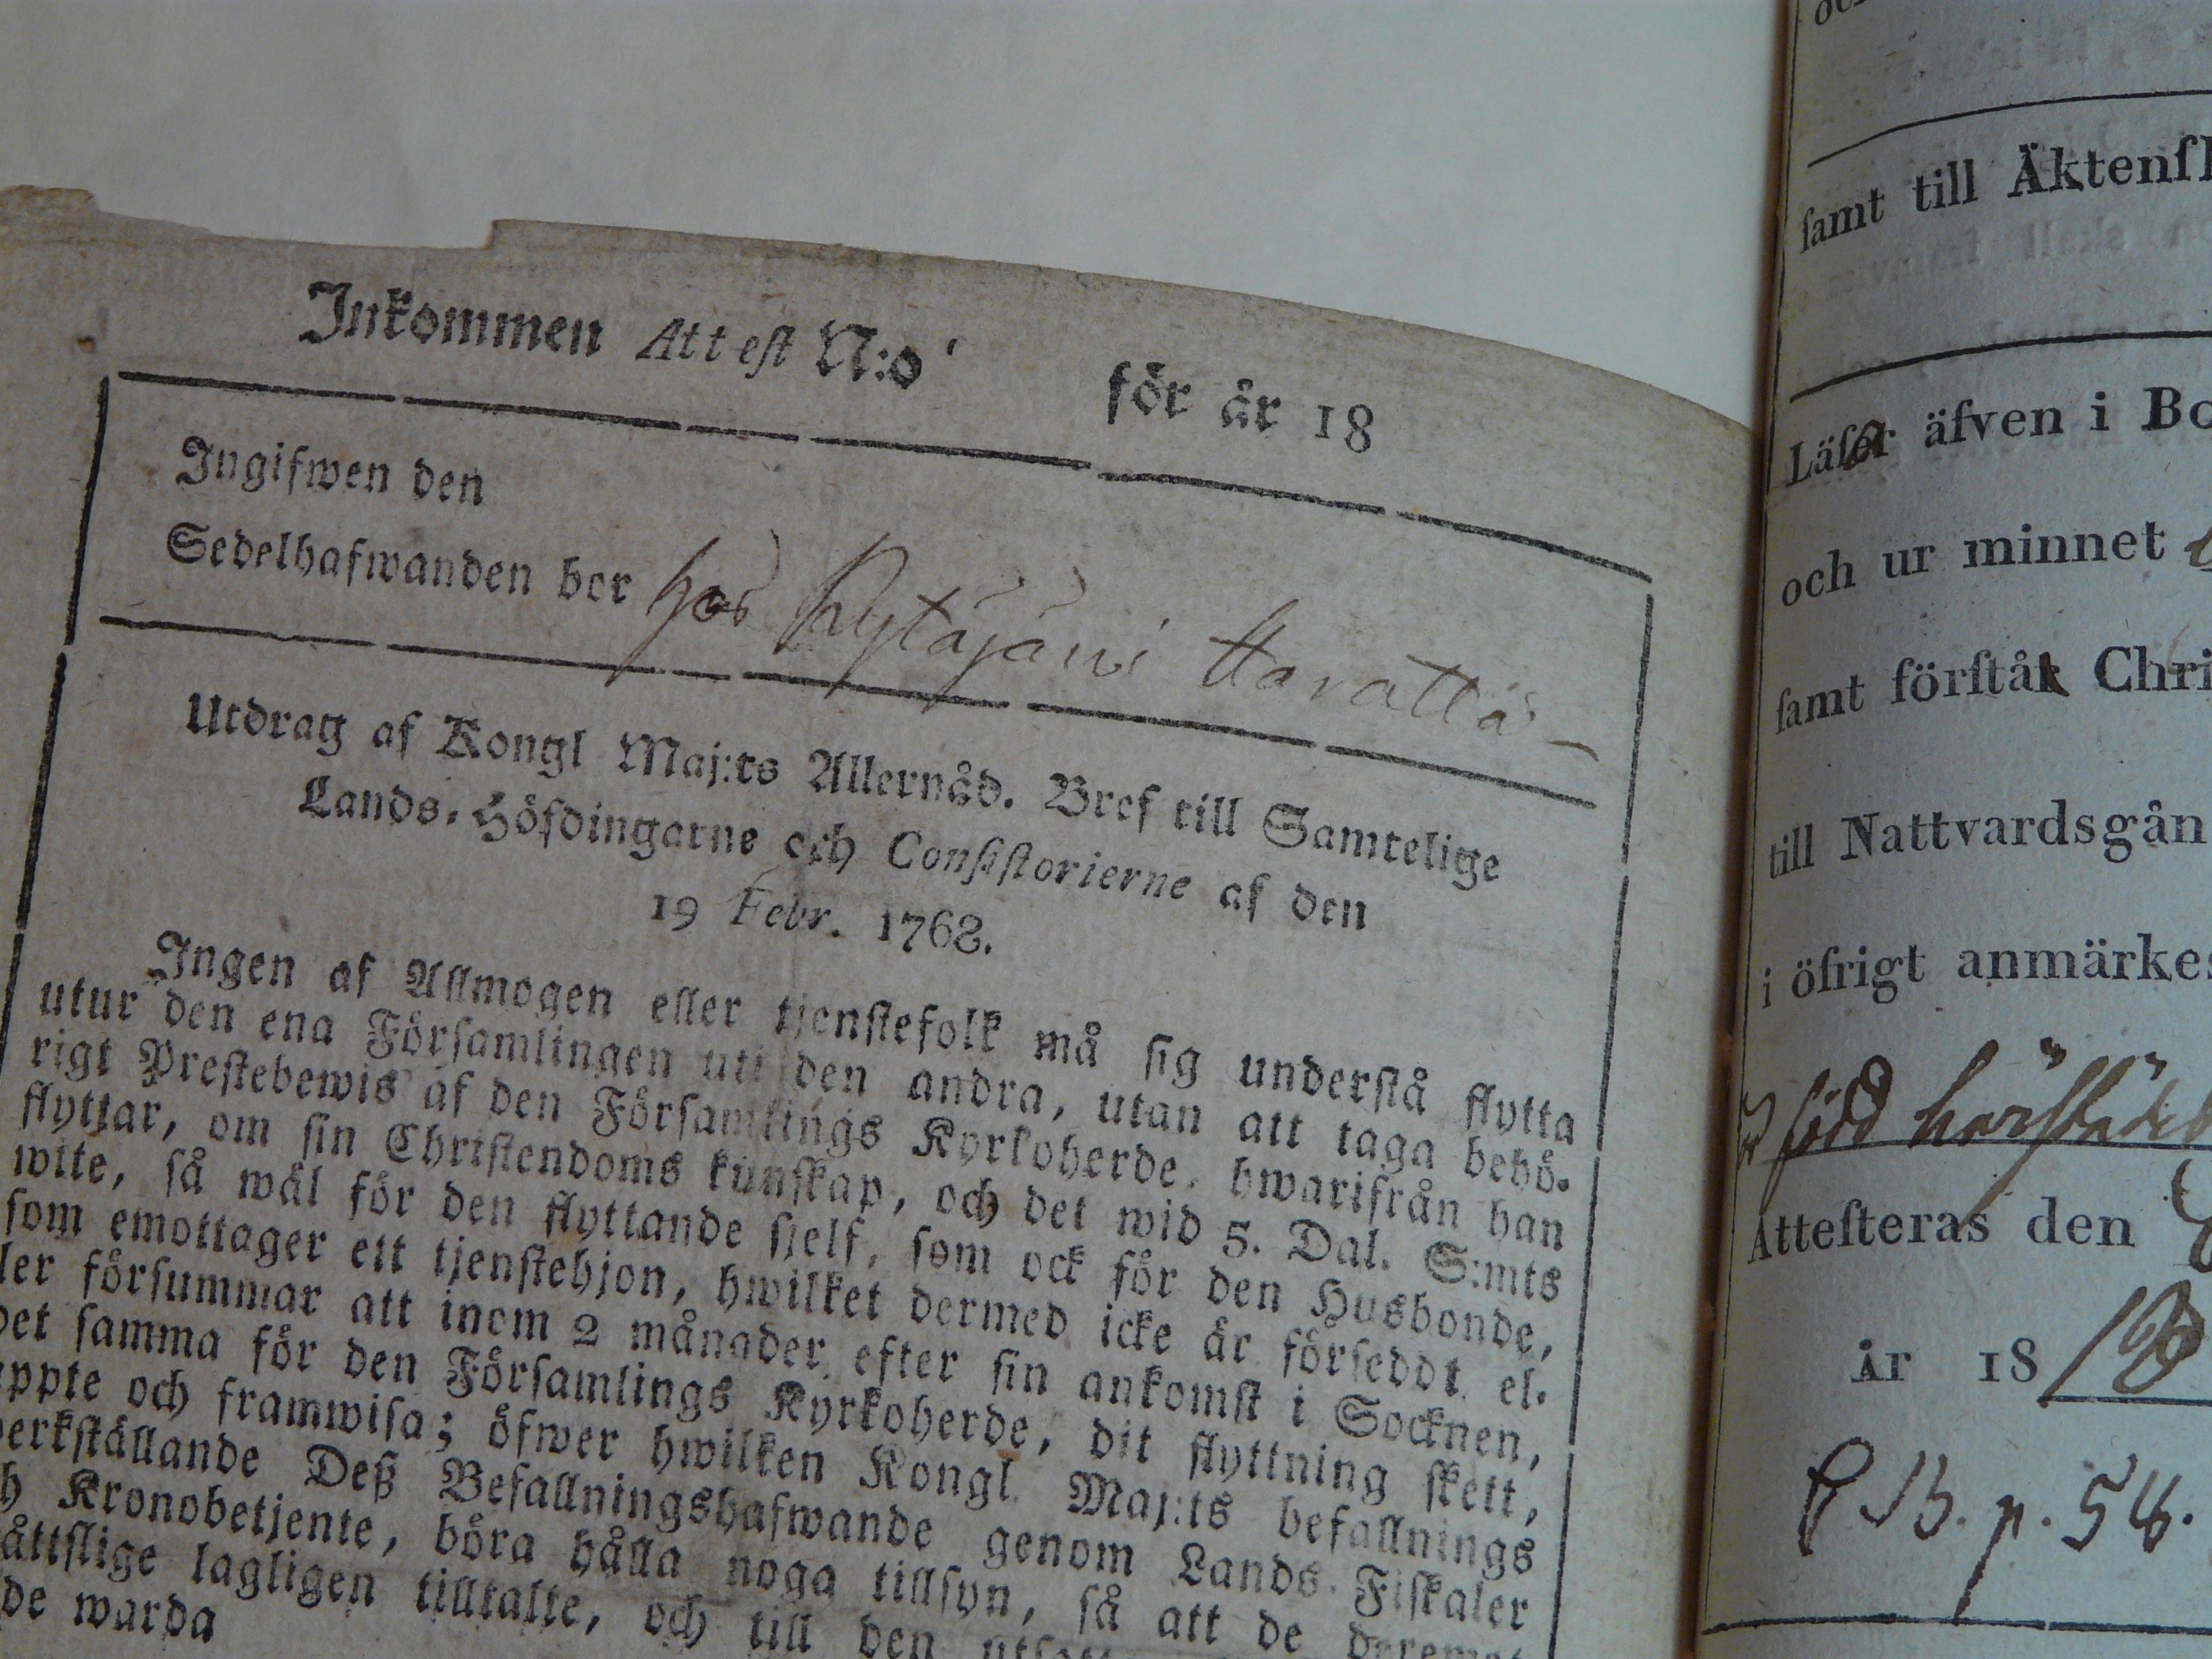 Inkommen Attest N:o för år 18
Ingifwen den
Sedelhafwanden bor hos
Utdrag af Kongl Maj:ts Allernåd. Bref till Samtelige
Lands-Höfdingarne och Consistorierne af den
19 Febr. 1768.
Ingen af Allmogen eller tjenstefolk må sig understå flytta
utur den ena Församlingen uti den andra, utan att taga behö-
rigt Prestebewis af den Församlings Kyrkoherde, hwarifrån han
flyttar, om sin Christendoms kunskap, och det wid 5. Dal. S:mts
wite, så wäl för den flyttande sjelf, som ock för den Husbonde,
som emottager ett tjenstehjon, hwilket dermed icke är förseddt el-
ler försummar att inom 2 månader efter sin ankomst i Socknen,
det samma för den Församlings Kyrkoherde, dit flyttning skett,
uppte och framwisa; öfwer hwilken Kongl. Maj:ts befallnings
werkställande Deß Befallningshafwande genom Lands-Fiskaler
h Kronobetjente, böra hålla noga tillsyn, så att de deremot
åttslige lagligen tilltalte, och till den
de warda
samt till Äktensk
Läser äfven i Bo
och ur minnet
samt förstår Chri
till Nattvardsgån
i öfrigt anmärkes
född härstädes
Attesteras den
år 18
p. 56.